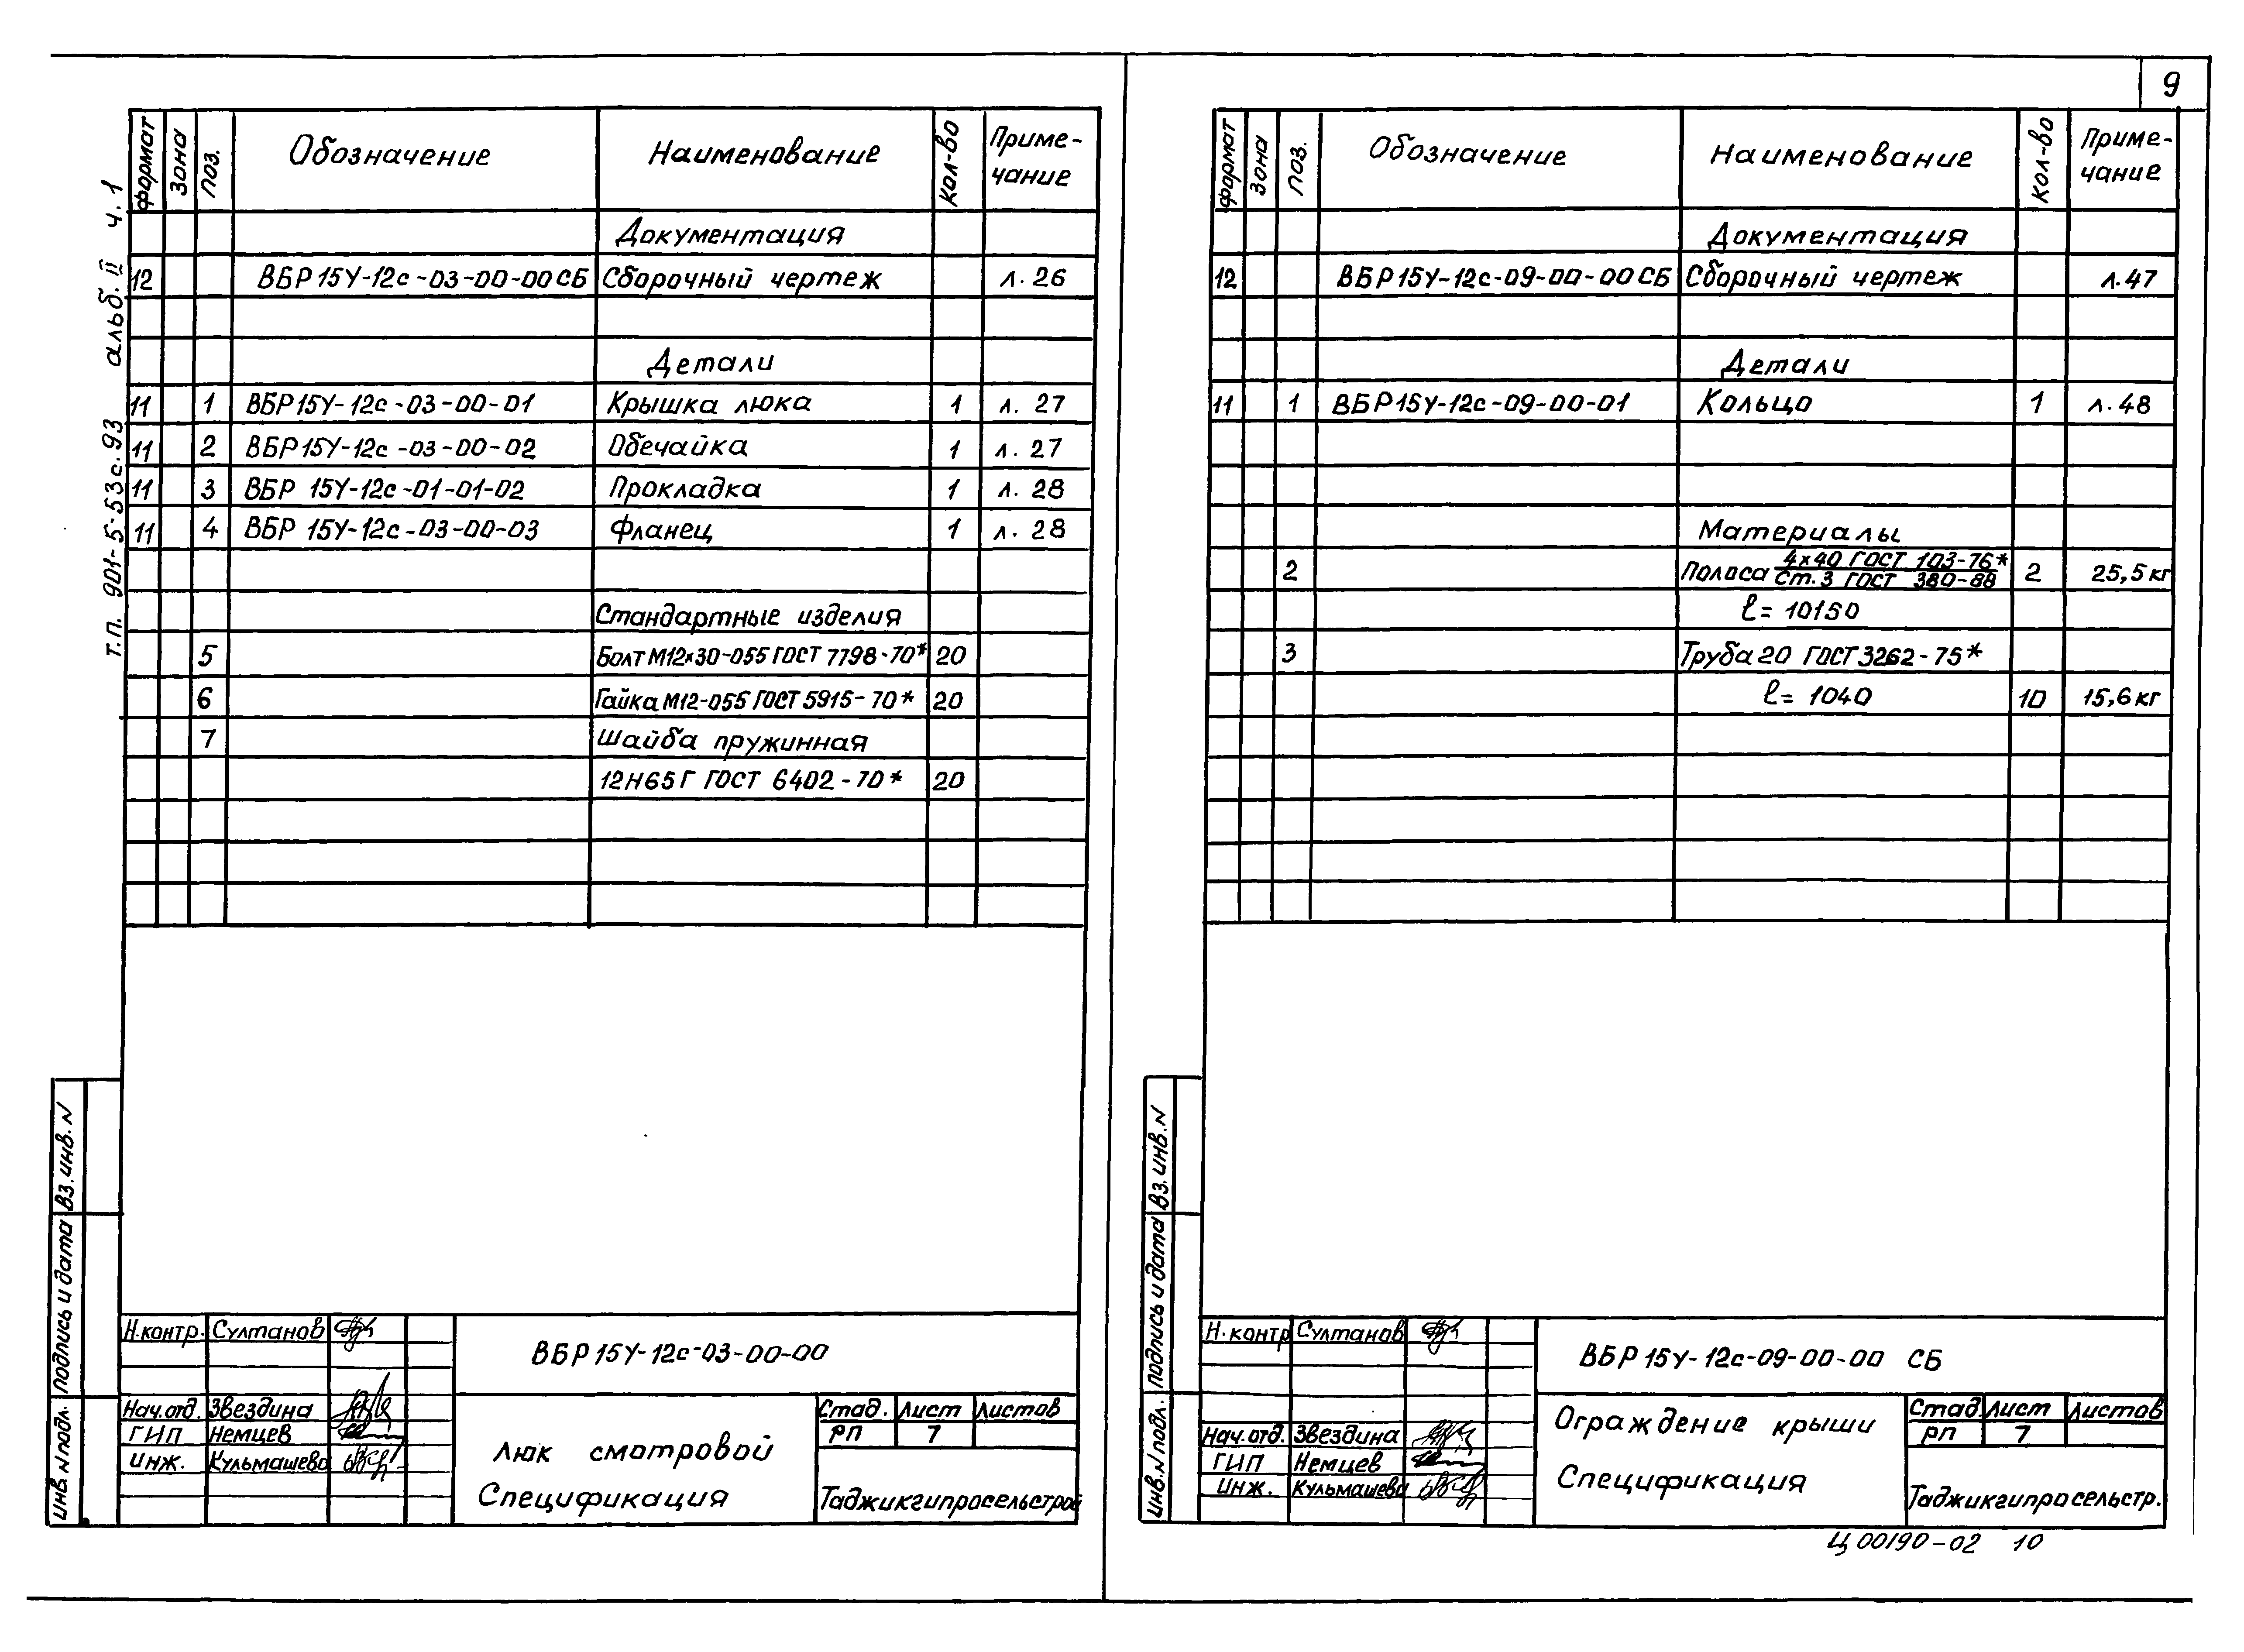 9
т.п. 901-5-53с.93 альб. II ч. 1
формат зона поз. Обозначение Наименование кол-во Приме-
чание
Документация
12 ВБР 15У-12с-03-00-00 СБ Сборочный чертеж л. 26
Детали
11 1 ВБР 15У-12с-03-00-01 Крышка люка 1 л. 27
11 2 ВБР 15У-12с-03-00-02 Обечайка 1 л. 27
11 3 ВБР 15У-12с-01-01-02 Прокладка 1 л. 28
11 4 ВБР 15У-12с-03-00-03 Фланец 1 л. 28
Стандартные изделия
5 Болт М12×30-055 ГОСТ 7798-70* 20
6 Гайка М12-055 ГОСТ 5915-70* 20
7 Шайба пружинная
12Н65Г ГОСТ 6402-70* 20
Инв. N подл. Подпись и дата Вз. инв. N
Н.контр. Султанов
Нач.отд. Звездина
ГИП Немцев
Инж. Кульмашева
ВБР 15У-12с-03-00-00
Люк смотровой
Спецификация
Стад. Лист Листов
РП 7
Таджикгипросельстрой
формат зона поз. Обозначение Наименование кол-во Приме-
чание
Документация
12 ВБР 15У-12с-09-00-00 СБ Сборочный чертеж л. 47
Детали
11 1 ВБР 15У-12с-09-00-01 Кольцо 1 л. 48
Материалы
2 Полоса 4×40 ГОСТ 103-76* 2 25,5 кг
Ст.3 ГОСТ 380-88
ℓ= 10150
3 Труба 20 ГОСТ 3262-75*
ℓ= 1040 10 15,6 кг
Инв. N подл. Подпись и дата Вз. инв. N
Н.контр Султанов
Нач.отд. Звездина
ГИП Немцев
Инж. Кульмашева
ВБР 15У-12с-09-00-00 СБ
Ограждение крыши
Спецификация
Стад Лист Листов
РП 7
Таджикгипросельстр.
Ц 00190-02 10